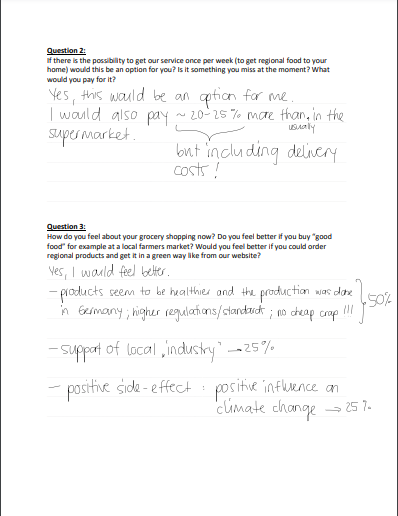 Question 2:
If there is the possibility to get our service once per week (to get regional food to your
home) would this be an option for you? Is it something you miss at the moment? What
would you pay for it?
Yes, this would be an option for me.
I would also pay ~ 20-25 % more than, in the
usually
supermarket.
but including delivery
costs !
Question 3:
How do you feel about your grocery shopping now? Do you feel better if you buy "good
food" for example at a local farmers market? Would you feel better if you could order
regional products and get it in a green way like from our website?
Yes, I would feel better.
- products seem to be healthier and the production was done
in Germany ; higher regulations/standards ; no cheap crap !!! } 50%
- support of local „industry" → 25 %
- positive side-effect : positive influence on
climate change → 25 %